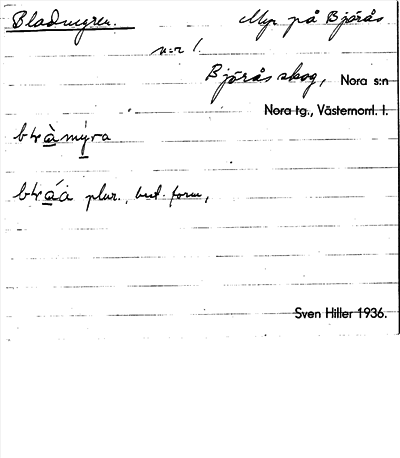 Bladmyren. Myr på Björås
n:r 1.
Björås skog, Nora s:n
Nora tg., Västernorrl. l.
myra
plur., best. form,
Sven Hiller 1936.